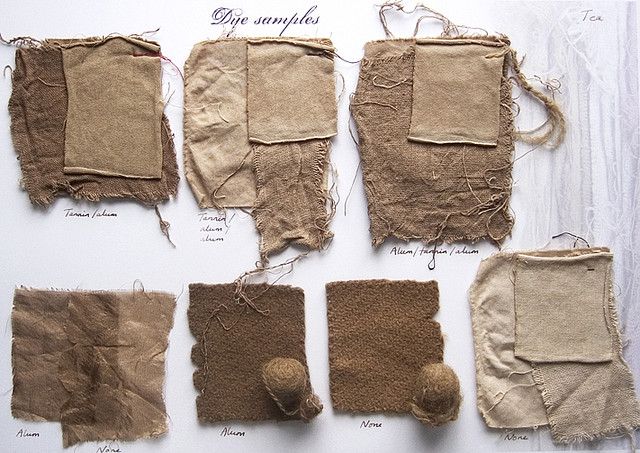 Dye samples
Tea
Tannin/alum
Tannin/
alum/
alum
Alum/tannin/alum
Alum
None
Alum
None
None